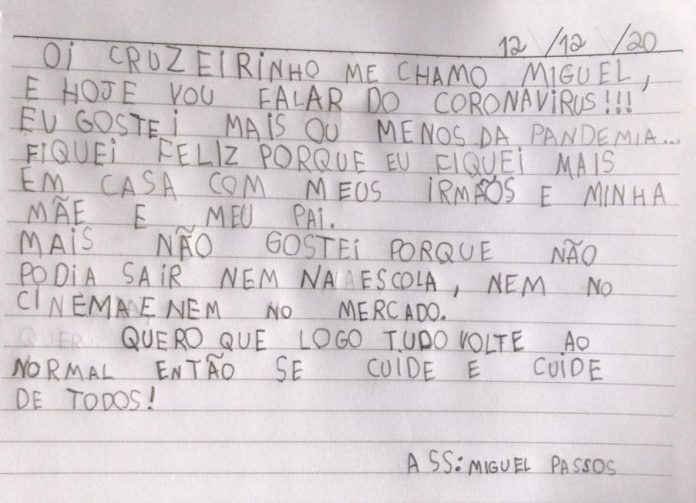 12/12/20
Oi CRUZEIRINHO ME CHAMO MIGUEL,
E HOJE VOU FALAR DO CORONAVIRUS!!!
EU GOSTEI MAIS OU MENOS DA PANDEMIA...
FIQUEI FELIZ PORQUE EU FIQUEI MAIS
EM CASA COM MEUS IRMÃOS E MINHA
MÃE E MEU PAI.
MAIS NÃO GOSTEI PORQUE NÃO
PODIA SAIR NEM NA ESCOLA, NEM NO
CINEMA E NEM NO MERCADO.
QUERO QUE LOGO TUDO VOLTE AO
NORMAL ENTÃO SE CUIDE E CUIDE
DE TODOS!
ASS: MIGUEL PASSOS